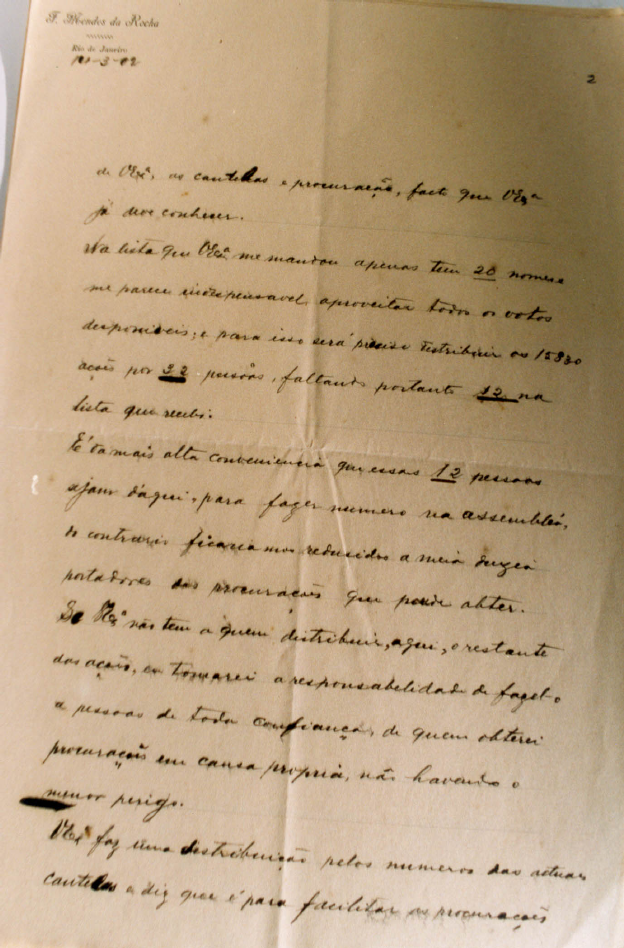 F. Mendes da Rocha
Rio de Janeiro
10-3-02
2
de VExª, as cautelas e procuração, facto que VExª
já deve conhecer.
Na lista que VExª me mandou apenas tem 20 nomes e
me parece indispensavel aproveitar todos os votos
desponiveis; e para isso será preciso destribuir as 15830
ações por 32 pessôas, faltando portanto 12 na
lista que recebi.
É da mais alta conveniencia que essas 12 pessoas
sejam d'aqui, para fazer numero na assembléa,
do contrario ficariamos redusidos a meia duzia
portadores das procurações que pude obter.
Se VExª não tem a quem distribuir, aqui, o restante
das ações, eu tomarei a responsabelidade de fazel-o
a pessoas de toda confiança, de quem obterei
procurações em causa propria, não havendo o
menor perigo.
VExª faz uma destribuição pelos numeros das actuaes
cautelas e diz que é para facilitar as procurações